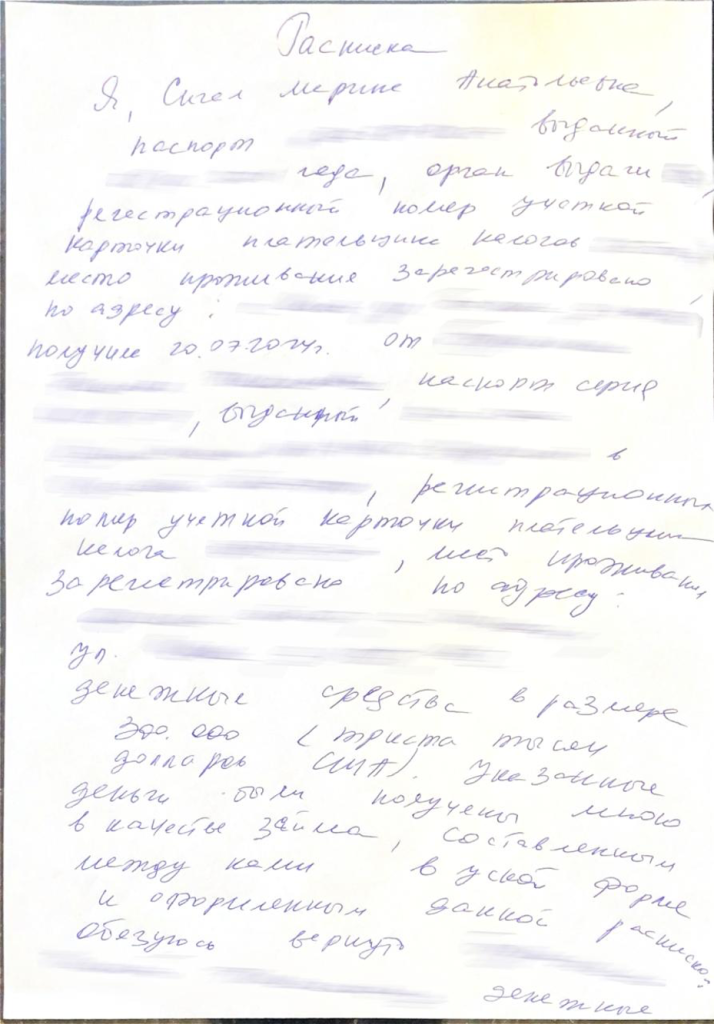 Расписка
Я, Сигал Марина Анатольевна,
паспорт выданный
года, орган выдачи ,
регестрационный номер учетной
карточки плательщика налогов
место проживание зарегестрировано
по адресу : ,
получила 20.07.2024г. от
, паспорт серия
, выданный
в
, регистрационный
номер учетной карточки плательщика
налога , мест проживания
зарегистрировано по адресу:
ул.
денежные средства в размере
300.000 (триста тысяч
долларов США). Указанные
деньги были получены мною
в качестве займа, составленным
между нами в усной форме
и оформленным данной распиской
обязуюсь вернуть
денежные